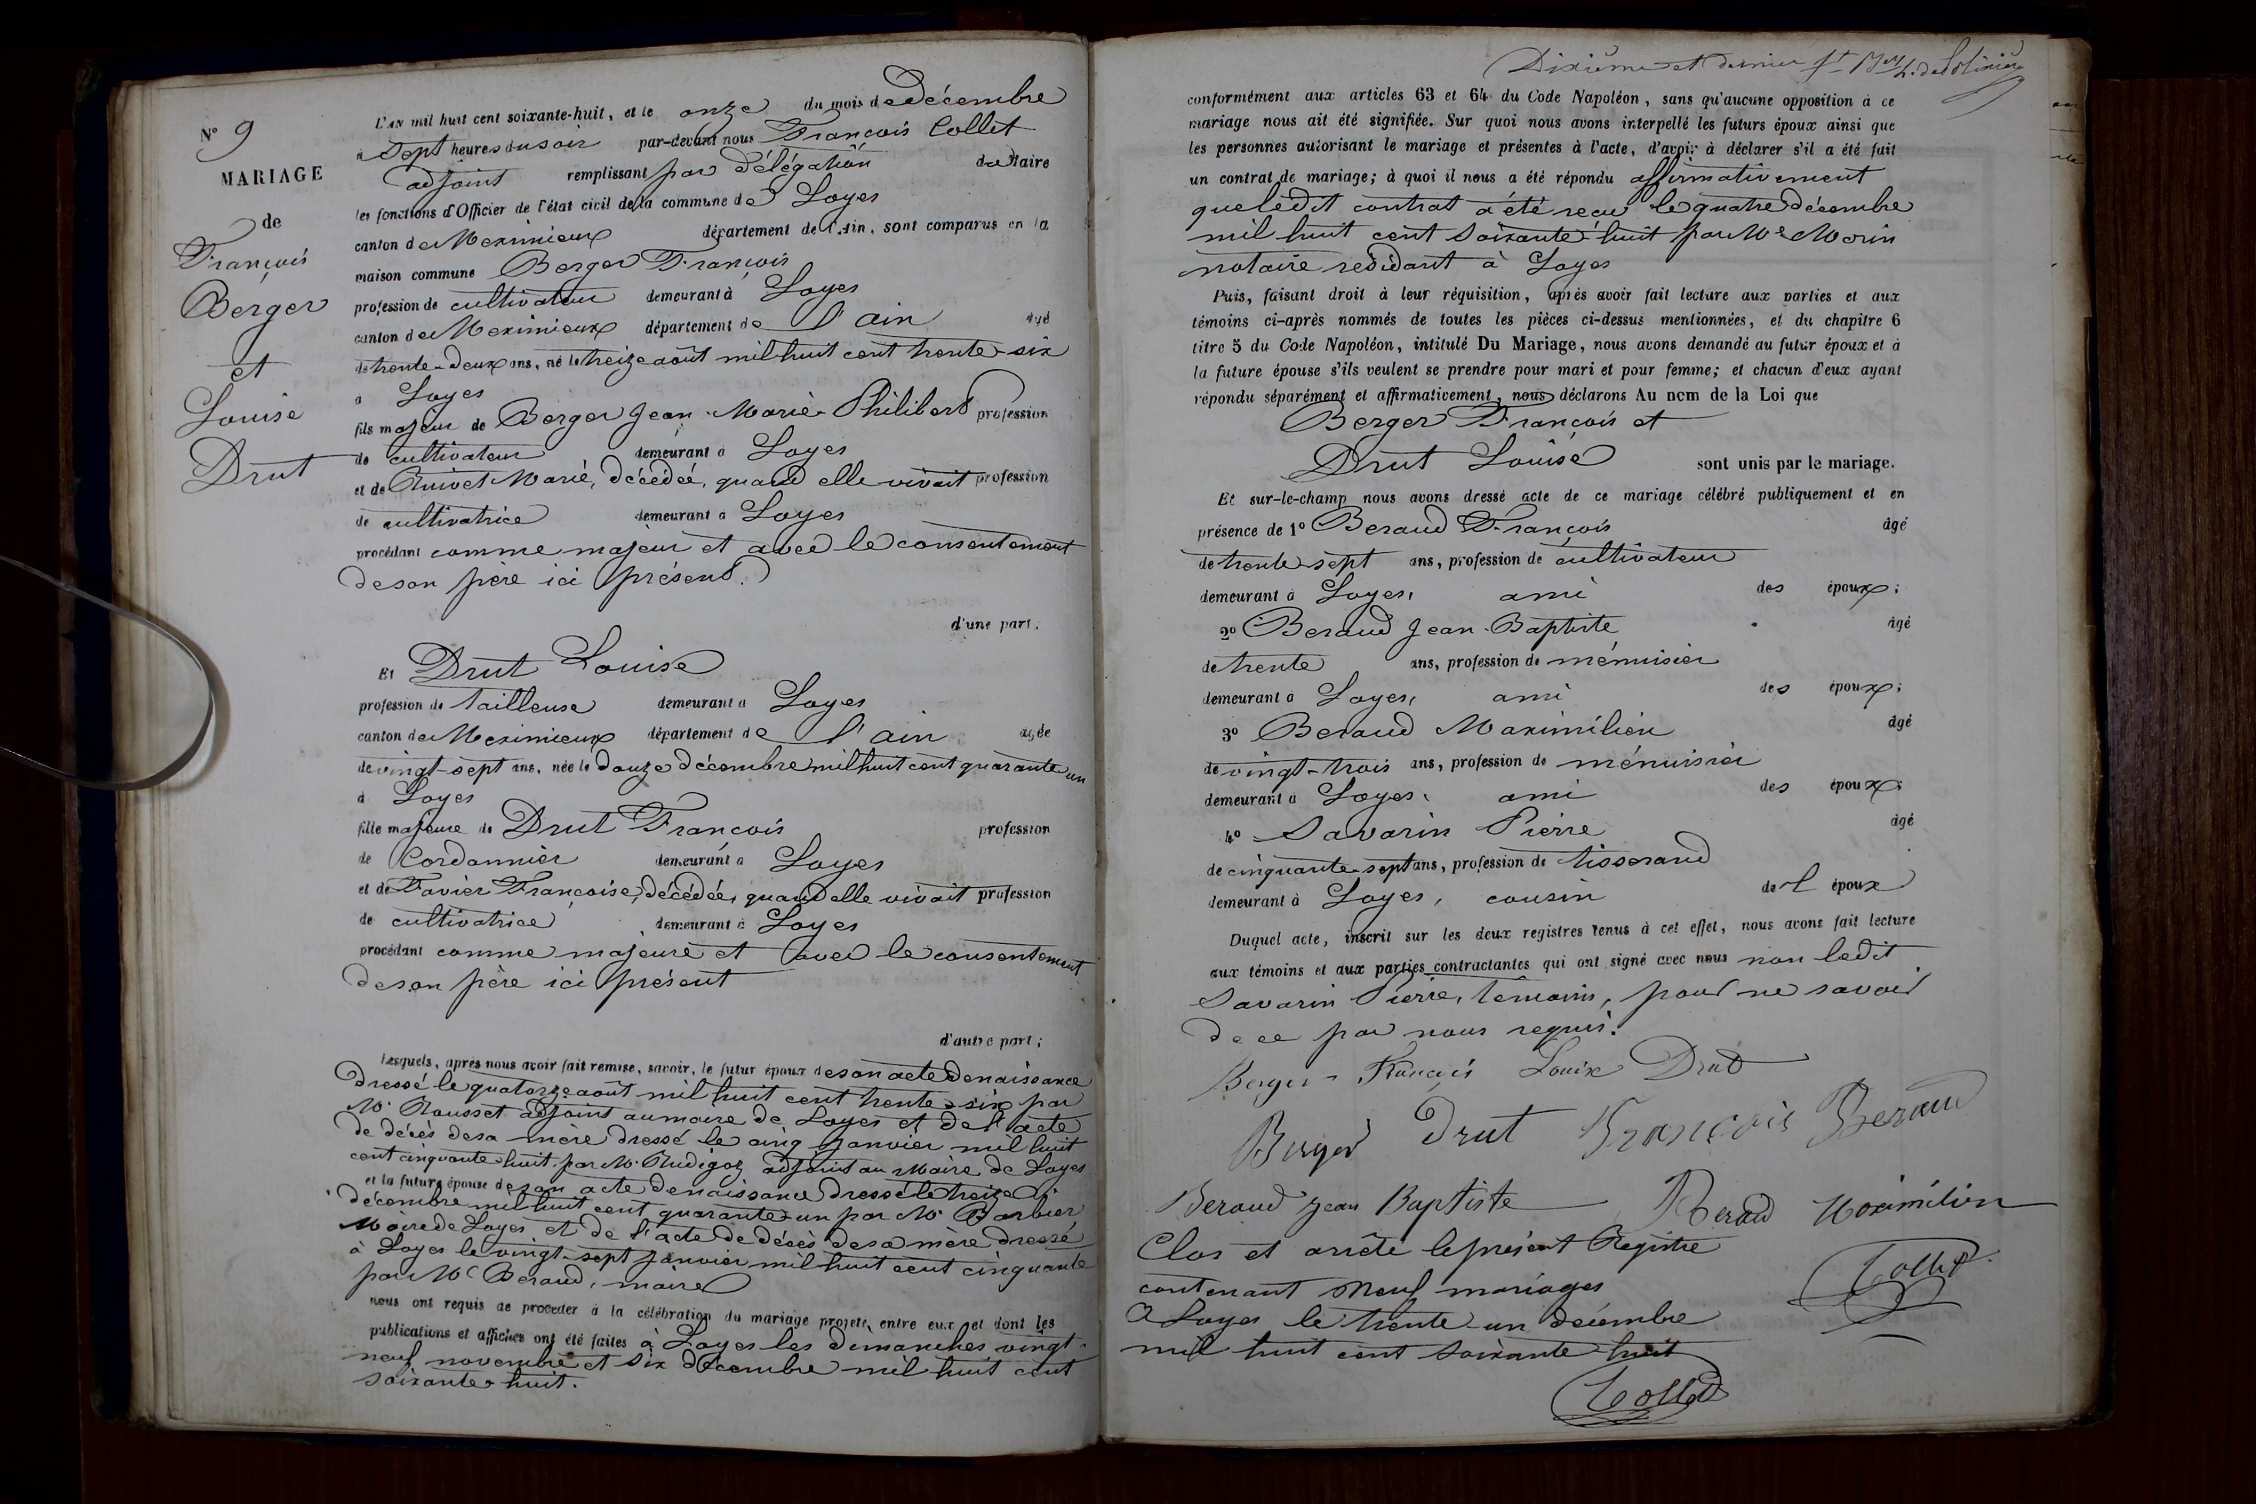 N° 9
MARIAGE
de
François
Berger
et
Louise
Drut
L'AN mil huit cent soixante-huit, et le onze du mois de décembre
à sept heures du soir par-devant nous François Collet
adjoint remplissant par délégation du Maire
les fonctions d'Officier de l'état civil de la commune de Loyes
canton de Meximieux département de l'Ain, sont comparus en la
maison commune Berger François
profession de cultivateur demeurant à Loyes
canton de Meximieux département de l'ain âgé
de trente-deux ans, né le treize août mil huit cent trente-six
à Loyes
fils majeur de Berger Jean-Marie-Philibert profession
de cultivateur demeurant à Loyes
et de Ruivet Marie, décédée, quand elle vivait profession
de cultivatrice demeurant à Loyes
procédant comme majeur et avec le consentement
de son père ici présent.
d'une part;
Et Drut Louise
profession de tailleuse demeurant à Loyes
canton de Meximieux département de l'ain âgée
de vingt-sept ans, née le douze décembre mil huit cent quarante un
à Loyes
fille majeure de Drut François profession
de Cordonnier demeurant à Loyes
et de Favier Françoise, décédée, quand elle vivait profession
de cultivatrice demeurant à Loyes
procédant comme majeure et avec le consentement
de son père ici présent
d'autre part;
Lesquels, après nous avoir fait remise, savoir, le futur époux de son acte de naissance
dressé le quatorze août mil huit cent trente-six par
Mr Rousset adjoint au maire de Loyes et de l'acte
de décès de sa mère dressé le cinq janvier mil huit
cent cinquante huit par Mr Rudigoz adjoint au Maire de Loyes
et la future épouse de son acte de naissance dressé le treize
décembre mil huit cent quarante-un par Mr Barbier
Maire de Loyes et de l'acte de décès de sa mère dressé
à Loyes le vingt-sept janvier mil huit cent cinquante
par Mr Beraud, maire
nous ont requis de procéder à la célébration du mariage projeté entre eux et dont les
publications et affiches ont été faites à Loyes les dimanches vingt-
neuf novembre et six décembre mil huit cent
soixante-huit.
Dixième et dernier
conformément aux articles 63 et 64 du Code Napoléon, sans qu'aucune opposition à ce
mariage nous ait été signifiée. Sur quoi nous avons interpellé les futurs époux ainsi que
les personnes autorisant le mariage et présentes à l'acte, d'avoir à déclarer s'il a été fait
un contrat de mariage; à quoi il nous a été répondu affirmativement
que ledit contrat a été reçu le quatre décembre
mil huit cent soixante-huit par Me Morin
notaire residant à Loyes
Puis, faisant droit à leur réquisition, après avoir fait lecture aux parties et aux
témoins ci-après nommés de toutes les pièces ci-dessus mentionnées, et du chapitre 6
titre 5 du Code Napoléon, intitulé Du Mariage, nous avons demandé au futur époux et à
la future épouse s'ils veulent se prendre pour mari et pour femme; et chacun d'eux ayant
répondu séparément et affirmativement, nous déclarons Au nom de la Loi que
Berger François et
Drut Louise sont unis par le mariage.
Et sur-le-champ nous avons dressé acte de ce mariage célébré publiquement et en
présence de 1° Beraud François âgé
de trente-sept ans, profession de cultivateur
demeurant à Loyes, ami des époux;
2° Beraud Jean-Baptiste âgé
de trente ans, profession de ménuisier
demeurant à Loyes, ami des époux;
3° Beraud Maximilien âgé
de vingt-trois ans, profession de ménuisier
demeurant à Loyes, ami des époux;
4° Savarin Pierre âgé
de cinquante-sept ans, profession de tisserand
demeurant à Loyes, cousin de l'époux
Duquel acte, inscrit sur les deux registres tenus à cet effet, nous avons fait lecture
aux témoins et aux parties contractantes qui ont signé avec nous non ledit
Savarin Pierre, témoin, pour ne savoir
de ce par nous requis.
Berger François Louise Drut
Berger Drut François Beraud
Beraud Jean Baptiste Beraud Maximilien
Clos et arrêté le présent Registre
contenant neuf mariages Collet
A Loyes le trente-un décembre
mil huit cent soixante huit
Collet